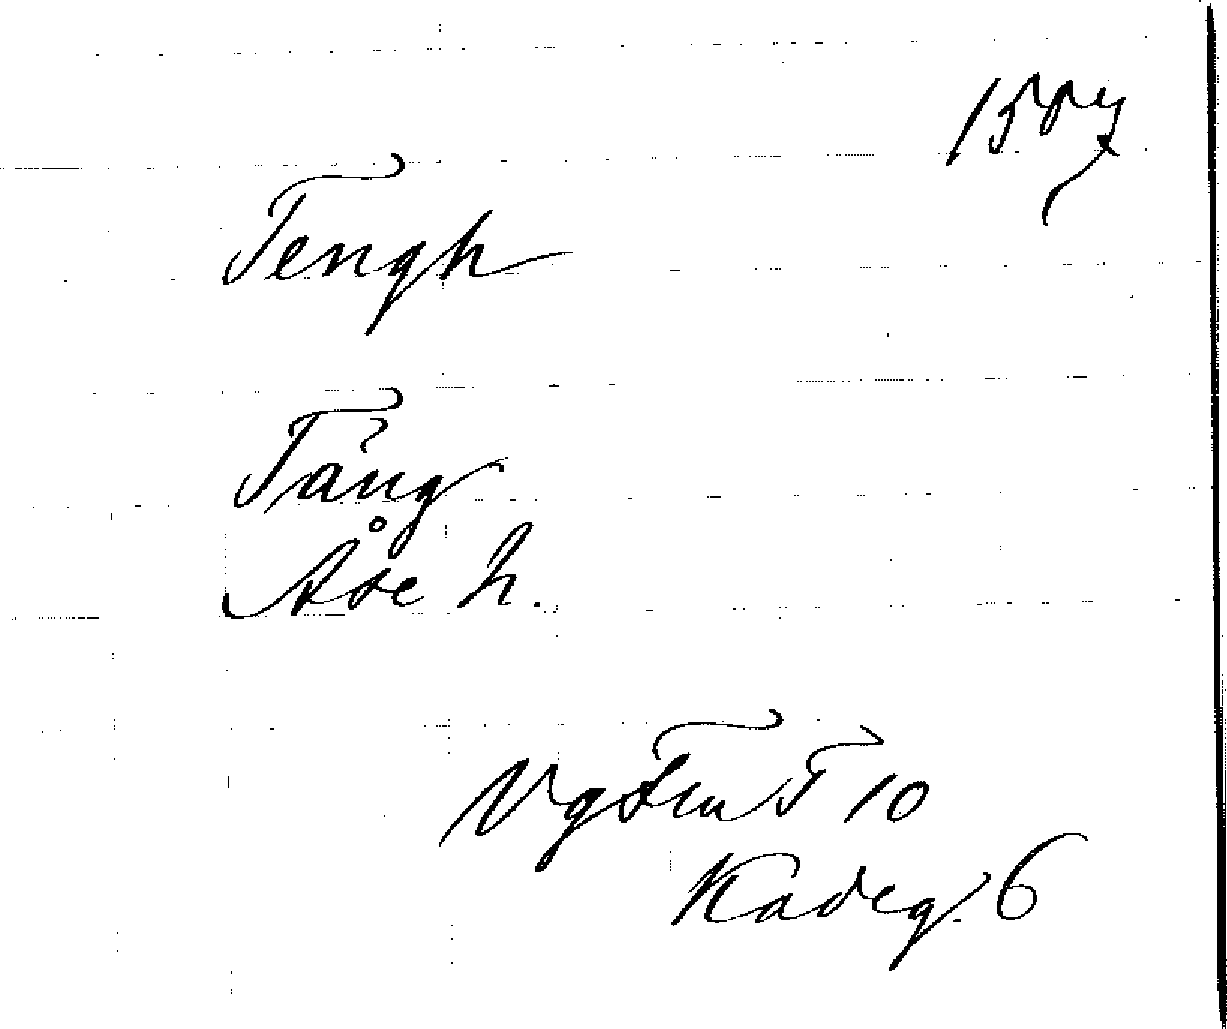 1587
Tengh
Tång
Åse h.
Vg Fru T 10
Kadeg. 6